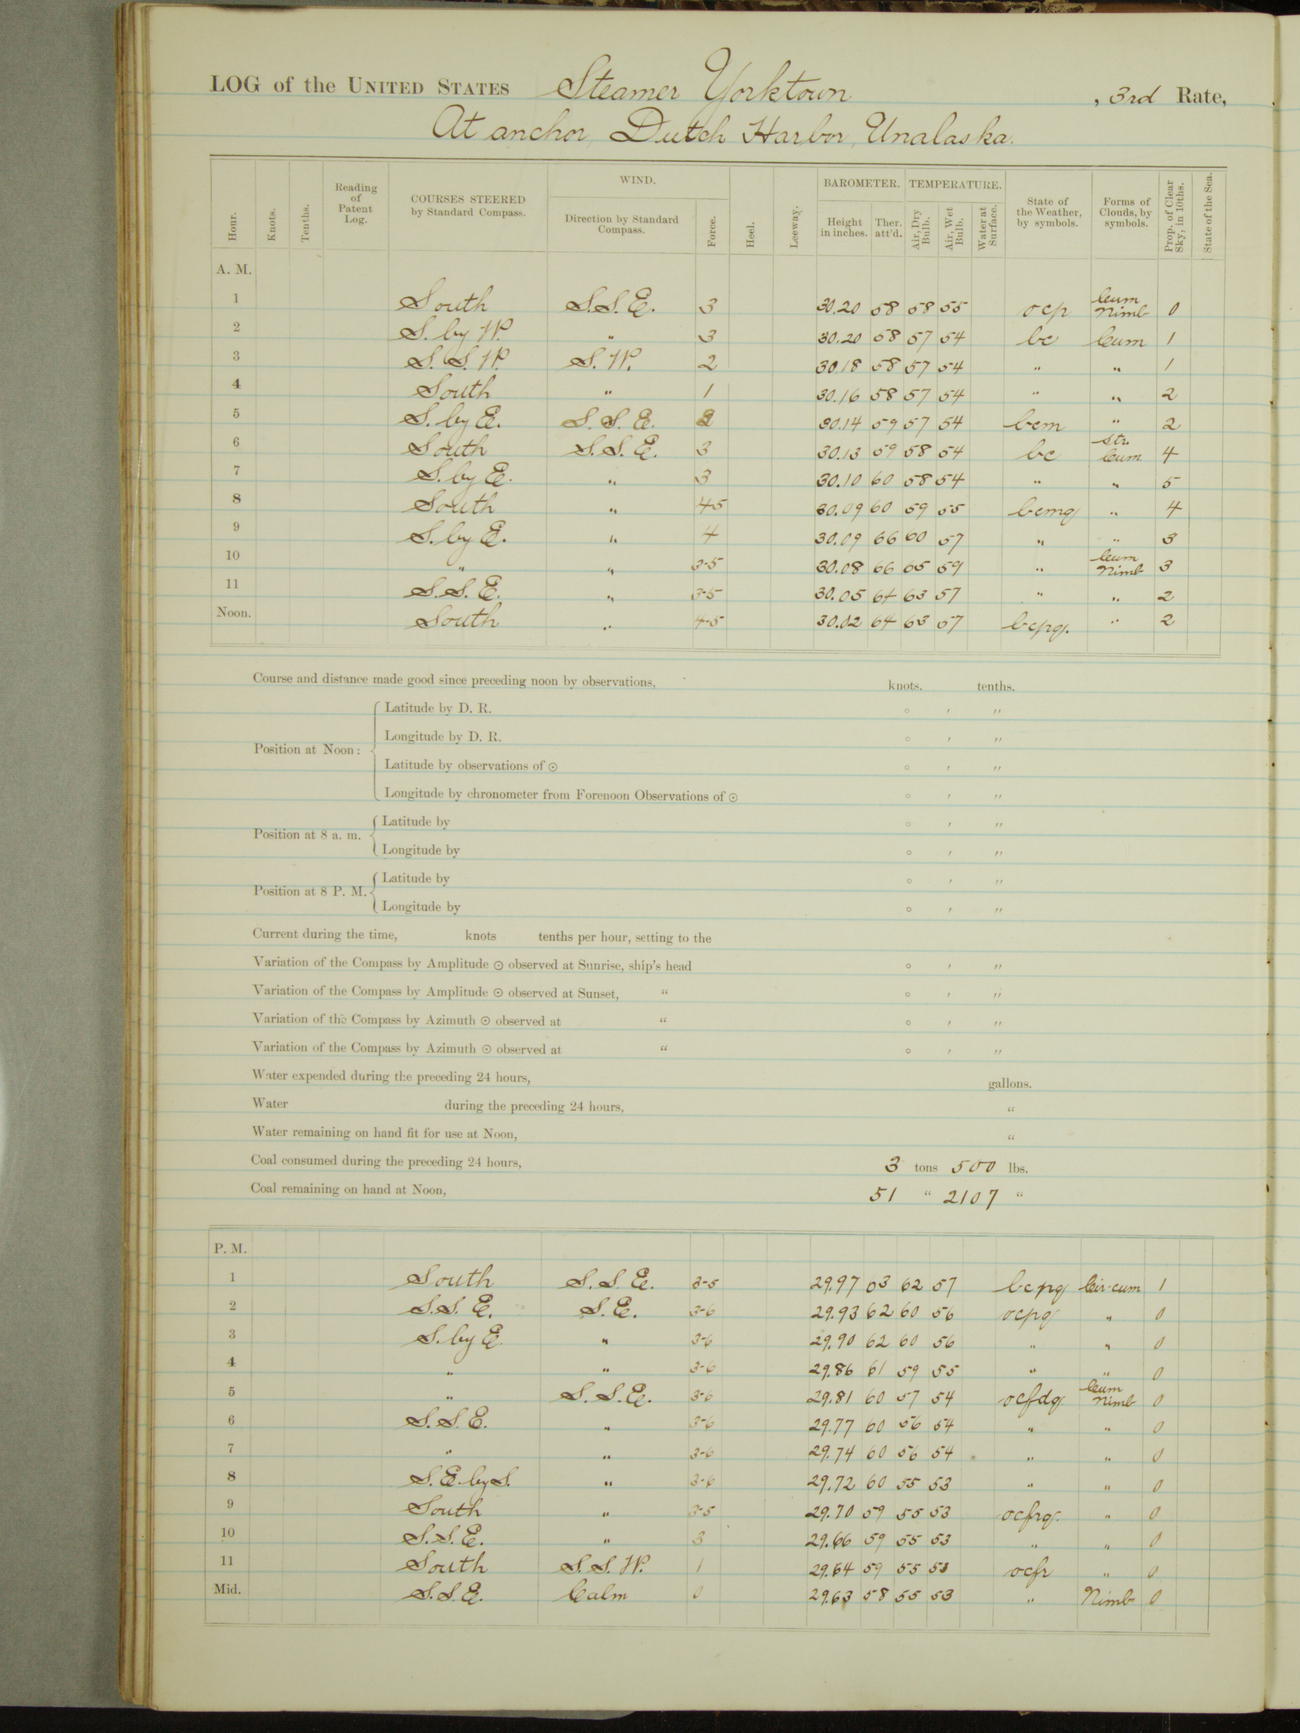 LOG of the UNITED STATES Steamer Yorktown , 3rd Rate,
At anchor, Dutch Harbor, Unalaska.
Hour. Knots. Tenths. Reading of Patent Log. COURSES STEERED by Standard Compass. WIND. Direction by Standard Compass. Force. Heel. Leeway. BAROMETER. Height in inches. Ther. att'd. TEMPERATURE. Air, Dry Bulb. Air, Wet Bulb. Water at Surface. State of the Weather, by symbols. Forms of Clouds, by symbols. Prop. of Clear Sky, in 10ths. State of the Sea.
A. M.
1 South S.S.E. 3 30.20 58 58 55 ocp Cum Nimb 0
2 S. by W. " 3 30.20 58 57 54 bc Cum 1
3 S.S.W. S.W. 2 30.18 58 57 54 " " 1
4 South " 1 30.16 58 57 54 " " 2
5 S. by E. S.S.E. 2 30.14 59 57 54 bcm " 2
6 South S.S.E. 3 30.13 59 58 54 bc Str. Cum 4
7 S. by E. " 3 30.10 60 58 54 " " 5
8 South " 4-5 30.09 60 59 55 bcmq " 4
9 S. by E. " 4 30.09 66 60 57 " " 3
10 " " 3-5 30.08 66 65 59 " Cum Nimb 3
11 S.S.E. " 3-5 30.05 64 63 57 " " 2
Noon. South " 4-5 30.02 64 63 57 bcpq. " 2
Course and distance made good since preceding noon by observations, knots. tenths.
Position at Noon: Latitude by D. R. ° ' "
Longitude by D. R. ° ' "
Latitude by observations of ☉ ° ' "
Longitude by chronometer from Forenoon Observations of ☉ ° ' "
Position at 8 a. m. Latitude by ° ' "
Longitude by ° ' "
Position at 8 P. M. Latitude by ° ' "
Longitude by ° ' "
Current during the time, knots tenths per hour, setting to the
Variation of the Compass by Amplitude ☉ observed at Sunrise, ship's head ° ' "
Variation of the Compass by Amplitude ☉ observed at Sunset, " ° ' "
Variation of the Compass by Azimuth ☉ observed at " ° ' "
Variation of the Compass by Azimuth ☉ observed at " ° ' "
Water expended during the preceding 24 hours, gallons.
Water during the preceding 24 hours, "
Water remaining on hand fit for use at Noon, "
Coal consumed during the preceding 24 hours, 3 tons 500 lbs.
Coal remaining on hand at Noon, 51 " 2107 "
P. M.
1 South S.S.E. 3-5 29.97 63 62 57 bcpq Cir-cum 1
2 S.S.E. S.E. 3-6 29.93 62 60 56 ocpq " 0
3 S. by E " 3-6 29.90 62 60 56 " " 0
4 " " 3-6 29.86 61 59 55 " " 0
5 " S.S.E. 3-6 29.81 60 57 54 ocfdq Cum Nimb 0
6 S.S.E. " 3-6 29.77 60 56 54 " " 0
7 " " 3-6 29.74 60 56 54 " " 0
8 S.E. by S. " 3-6 29.72 60 55 53 " " 0
9 South " 3-5 29.70 59 55 53 ocfrq. " 0
10 S.S.E. " 3 29.66 59 55 53 " " 0
11 South S.S.W. 1 29.64 59 55 53 ocfr " 0
Mid. S.S.E. Calm 0 29.63 58 55 53 " Nimb 0